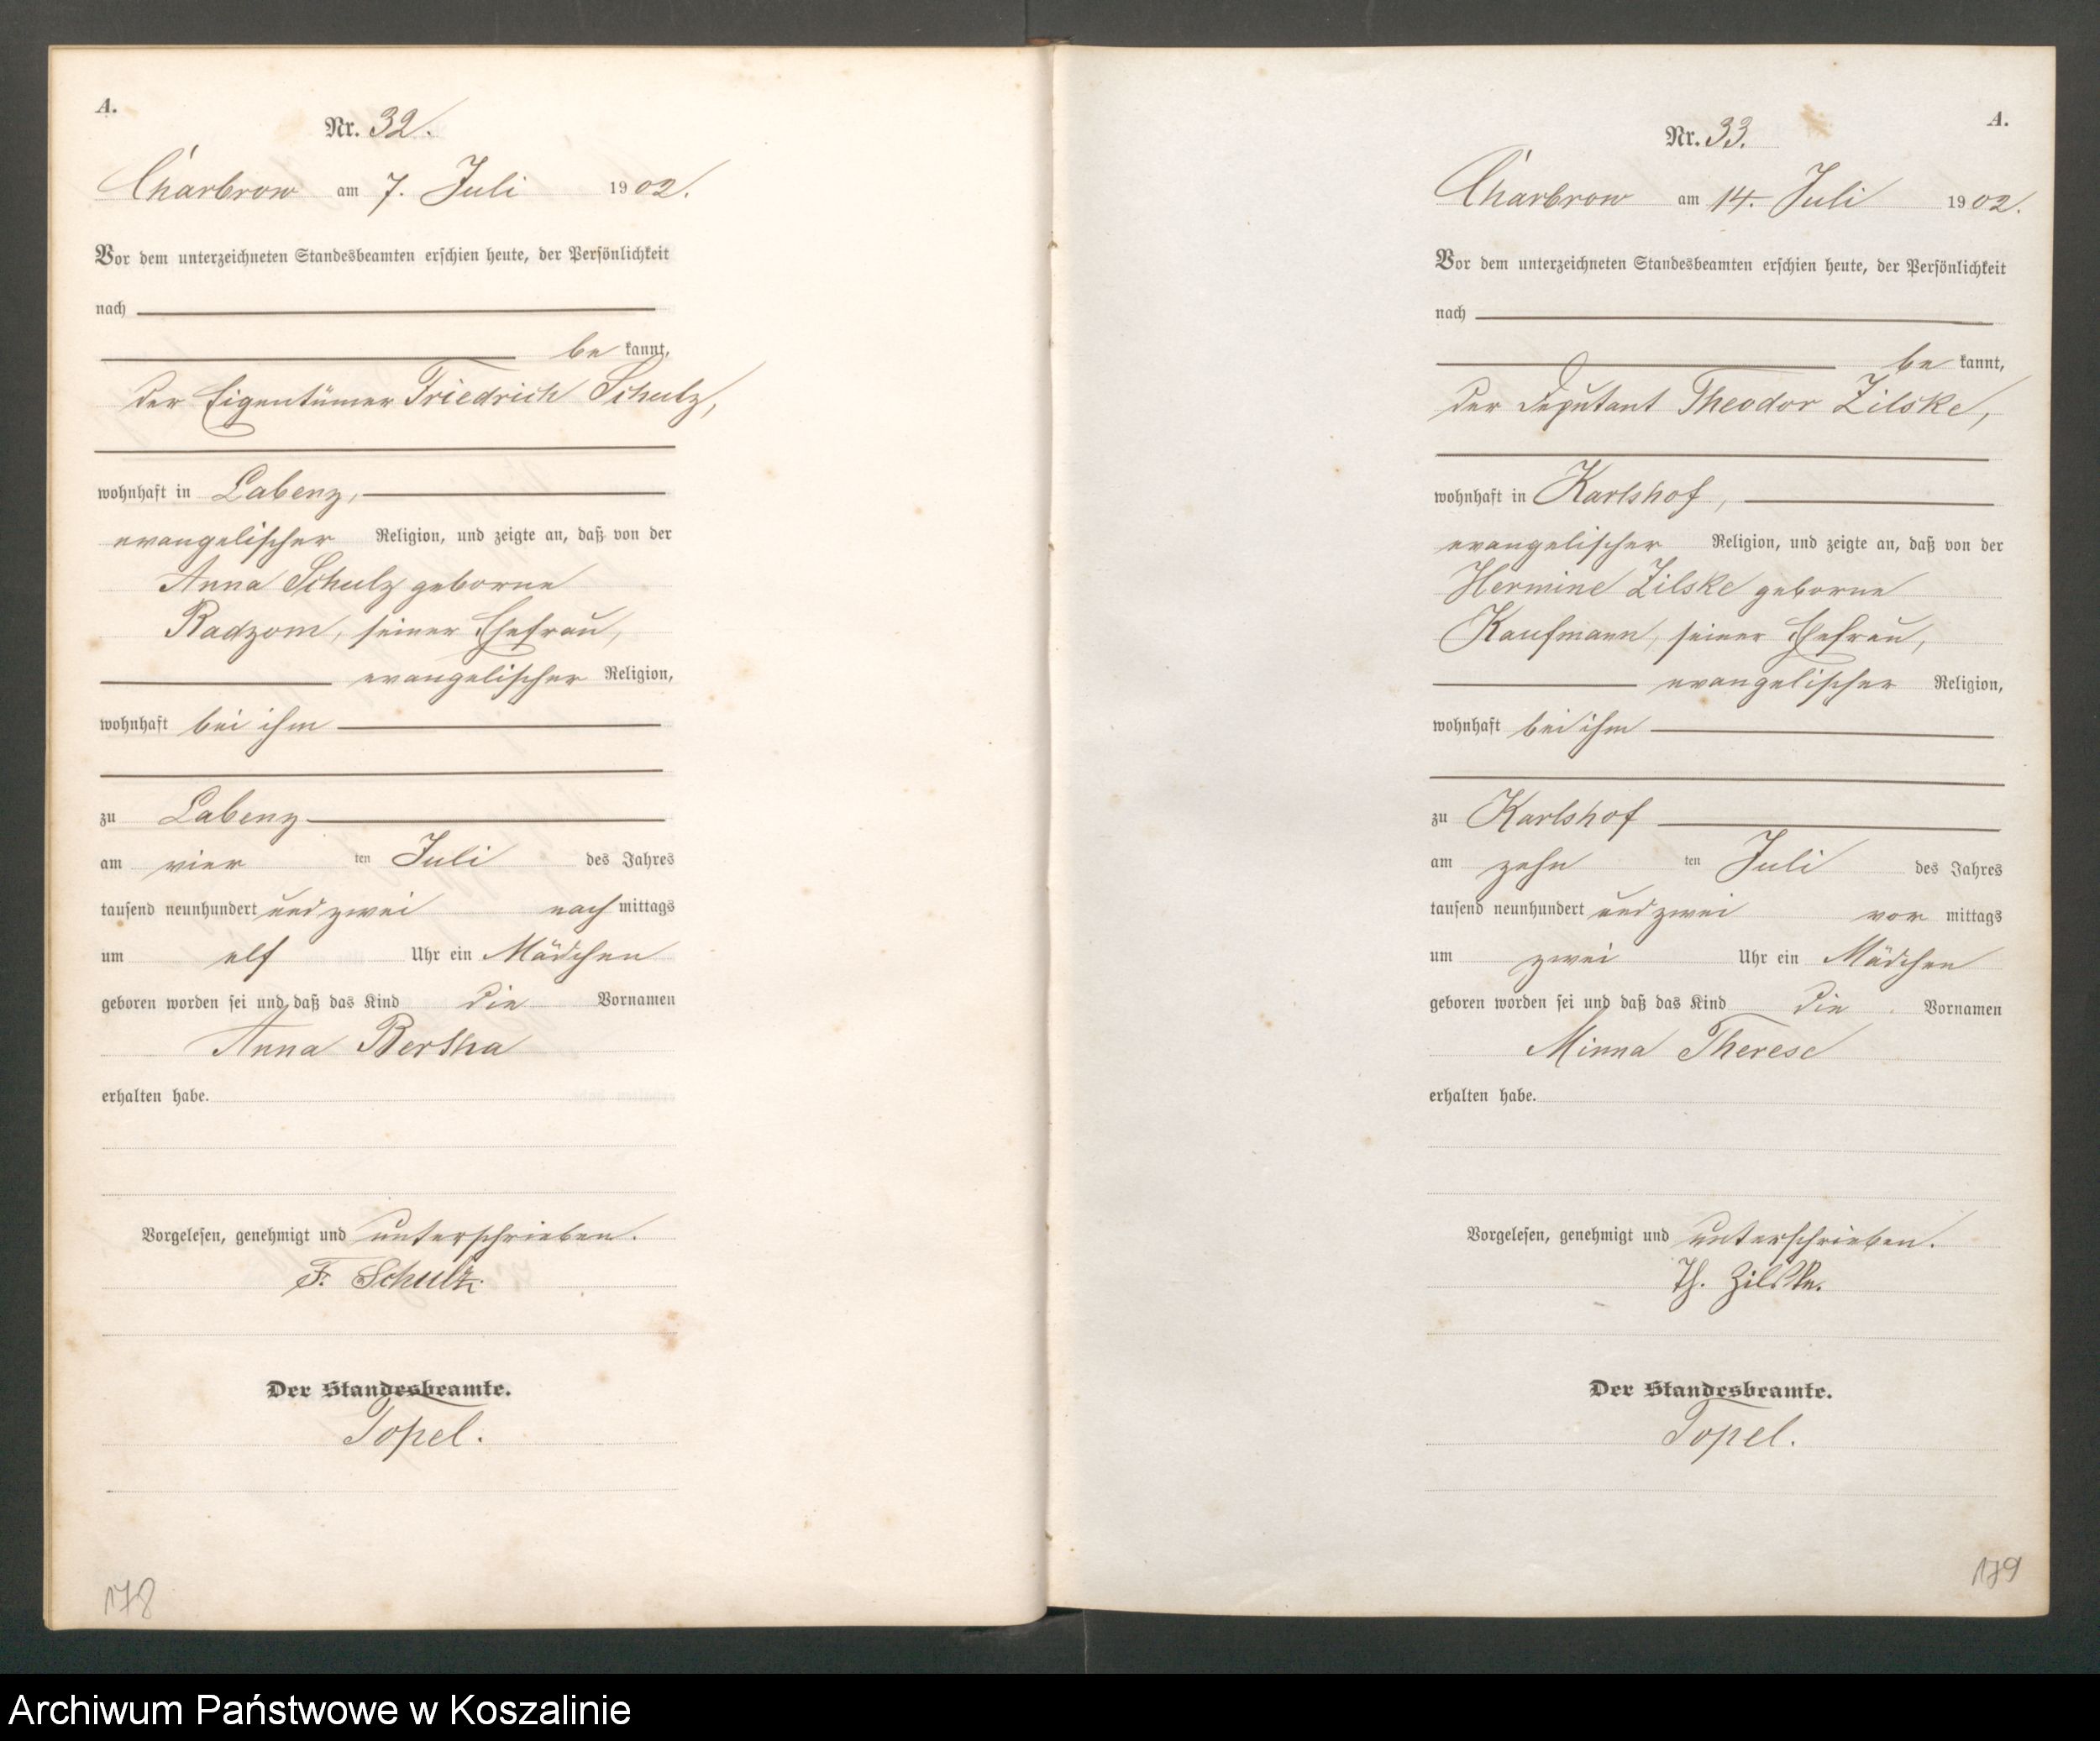 A.
Nr. 32.
Charbrow am 7. Juli 1902.
Vor dem unterzeichneten Standesbeamten erschien heute, der Persönlichkeit
nach
be kannt,
der Eigentümer Friedrich Schulz,
wohnhaft in Labenz,
evangelischer Religion, und zeigte an, daß von der
Anna Schulz geborne
Radzom, seiner Ehefrau,
evangelischer Religion,
wohnhaft bei ihm
zu Labenz
am vier ten Juli des Jahres
tausend neunhundert und zwei nach mittags
um elf Uhr ein Mädchen
geboren worden sei und daß das Kind die Vornamen
Anna Bertha
erhalten habe.
Vorgelesen, genehmigt und unterschrieben.
F. Schulz.
Der Standesbeamte.
Topel.
178
A.
Nr. 33.
Charbrow am 14. Juli 1902.
Vor dem unterzeichneten Standesbeamten erschien heute, der Persönlichkeit
nach
be kannt,
der Deputant Theodor Zilske,
wohnhaft in Karlshof,
evangelischer Religion, und zeigte an, daß von der
Hermine Zilske geborne
Kaufmann, seiner Ehefrau,
evangelischer Religion,
wohnhaft bei ihm
zu Karlshof
am zehn ten Juli des Jahres
tausend neunhundert und zwei vor mittags
um zwei Uhr ein Mädchen
geboren worden sei und daß das Kind die Vornamen
Minna Therese
erhalten habe.
Vorgelesen, genehmigt und unterschrieben.
Th. Zilske.
Der Standesbeamte.
Topel.
179
Archiwum Państwowe w Koszalinie